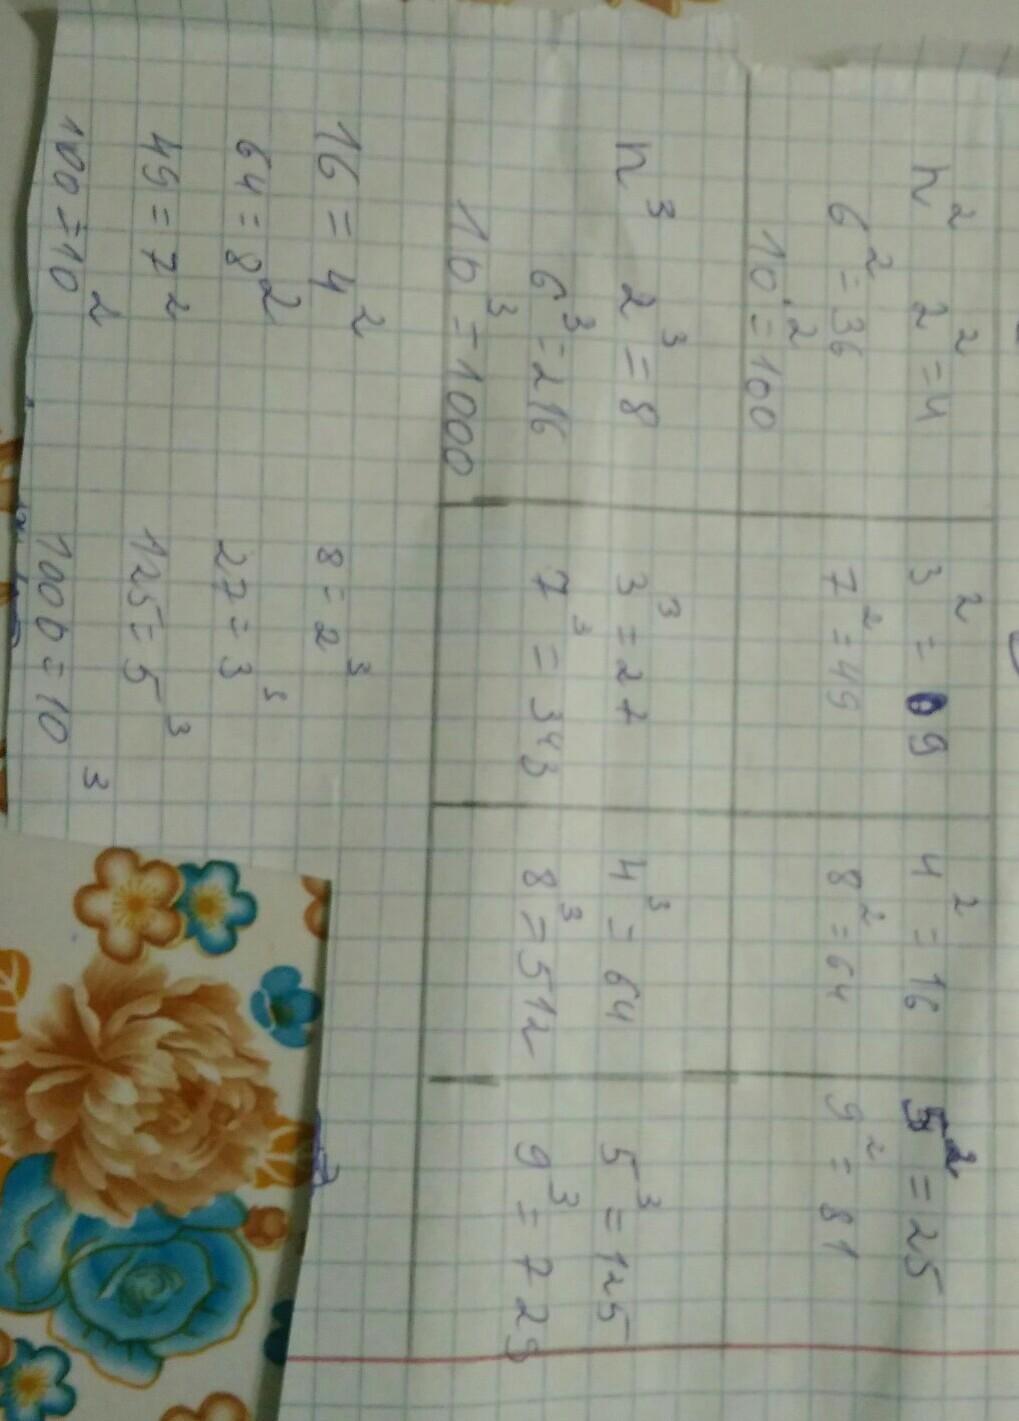 n² 2² = 4 3² = 9 4² = 16 5² = 25
6² = 36 7² = 49 8² = 64 9² = 81
10² = 100
n³ 2³ = 8 3³ = 27 4³ = 64 5³ = 125
6³ = 216 7³ = 343 8³ = 512 9³ = 729
10³ = 1000
16 = 4² 8 = 2³
64 = 8² 27 = 3³
49 = 7² 125 = 5³
100 = 10² 1000 = 10³